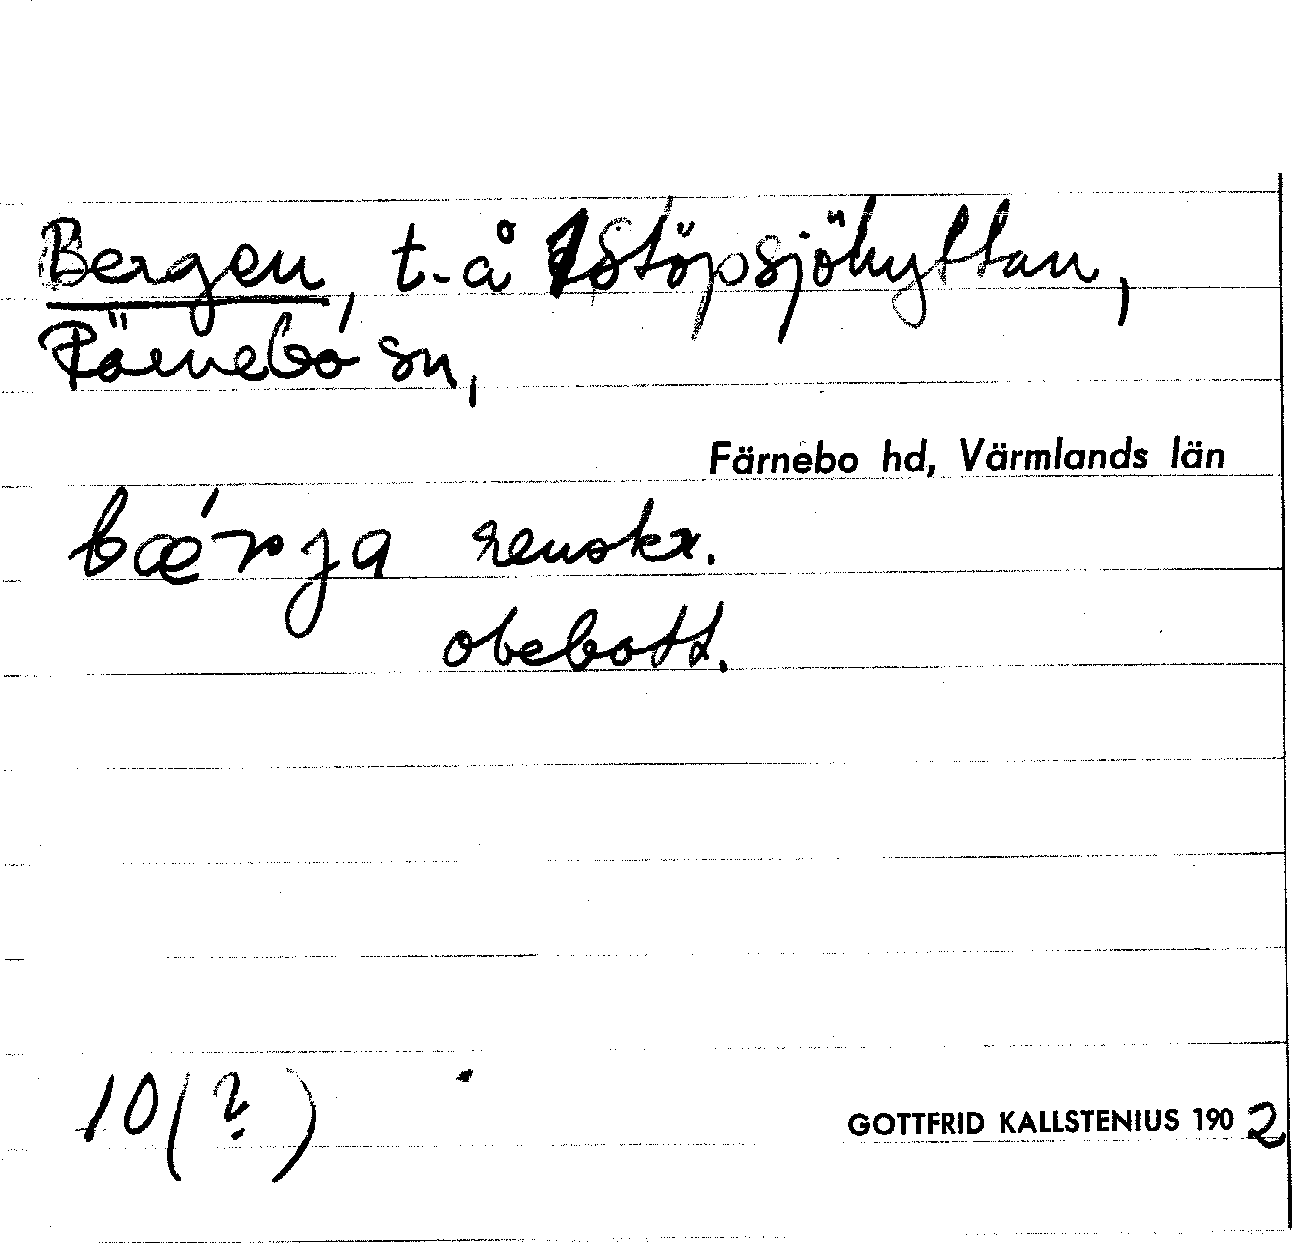 Bergen, t. å Stöpsjöhyttan,
Färnebo sn,
Färnebo hd, Värmlands län
bǽrja
obebott.
10(?)
GOTTFRID KALLSTENIUS 1902